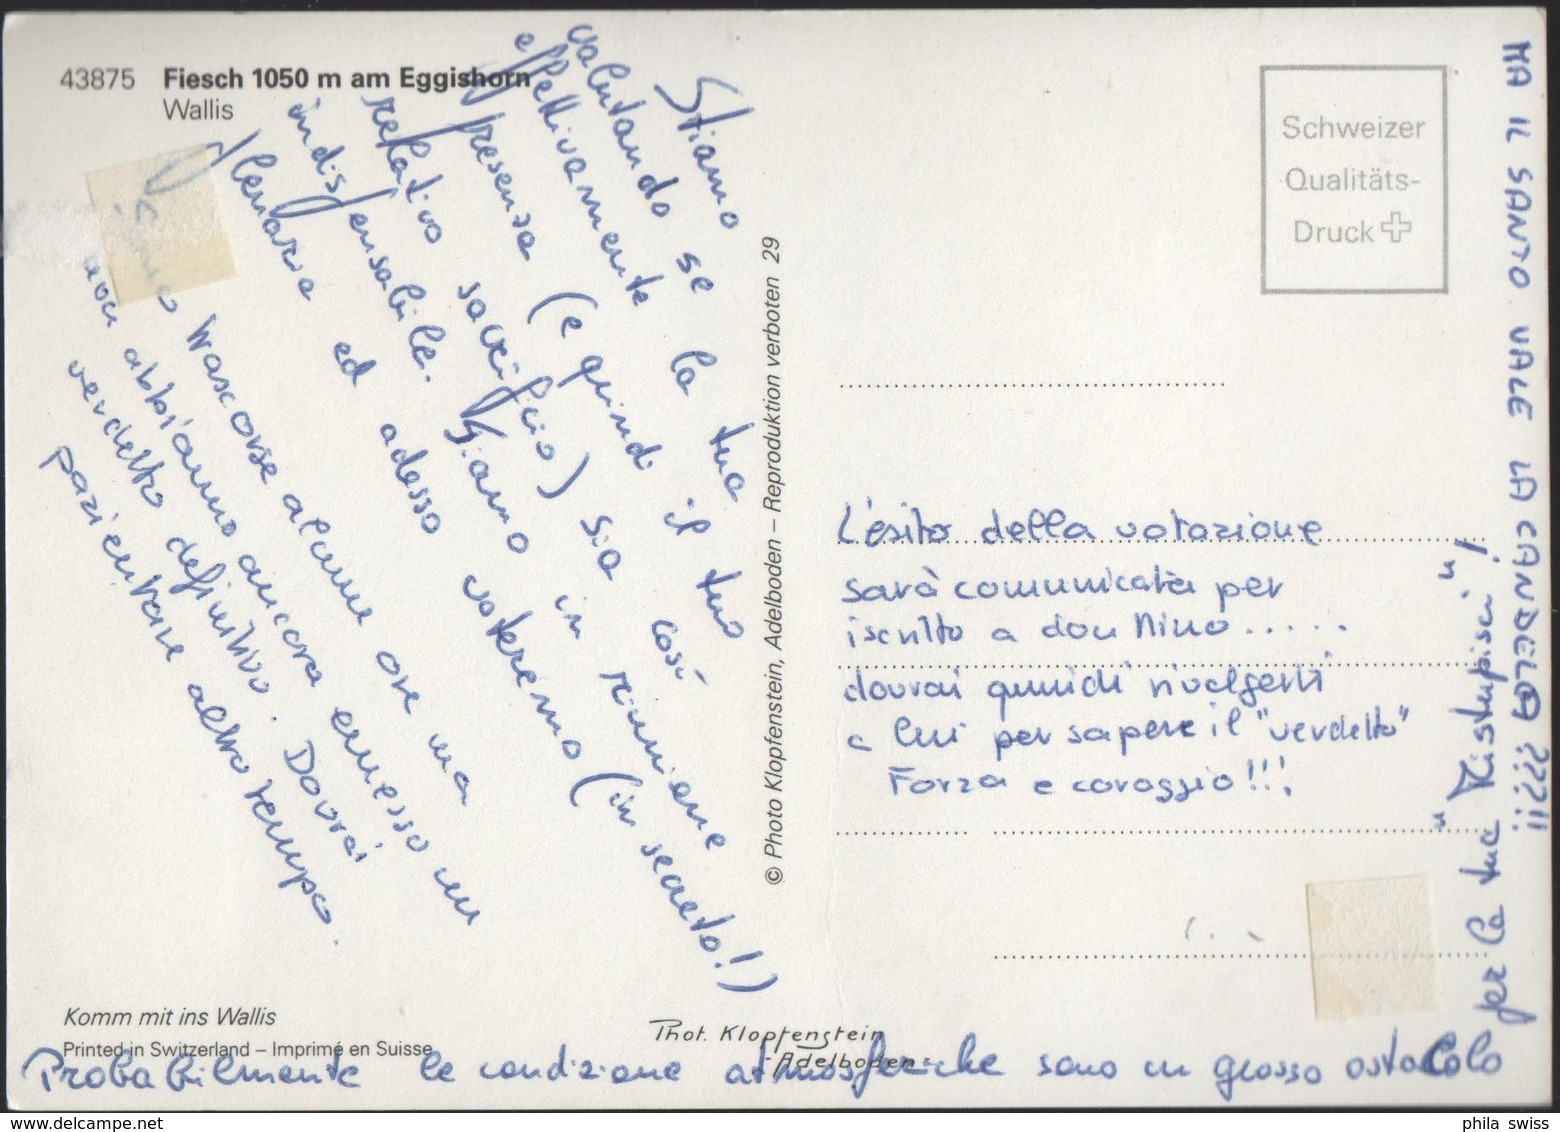 43875 Fiesch 1050 m am Eggishorn
Wallis
Stiamo
valutando se la tua
effettivamente
presenza (e quindi il tuo
relativo sacrificio) sia così
indispensabile. Siamo in riunione
plenaria ed adesso voteremo (in segreto!)
Sono trascorse alcune ore ma
non abbiamo ancora emesso un
verdetto definitivo. Dovrai
pazientare altro tempo.
Komm mit ins Wallis
Printed in Switzerland – Imprimé en Suisse
Phot. Klopfenstein
- Adelboden -
© Photo Klopfenstein, Adelboden – Reproduktion verboten 29
Schweizer
Qualitäts-
Druck
L'esito della votazione
sarà comunicata per
iscritto a don Nino.....
dovrai quindi rivolgerti
a lui per sapere il "verdetto"
Forza e coraggio!!!
Probabilmente le condizione atmosferiche sono un grosso ostacolo
per la tua "Ristupisci"!
MA IL SANTO VALE LA CANDELA ???!!
phila swiss